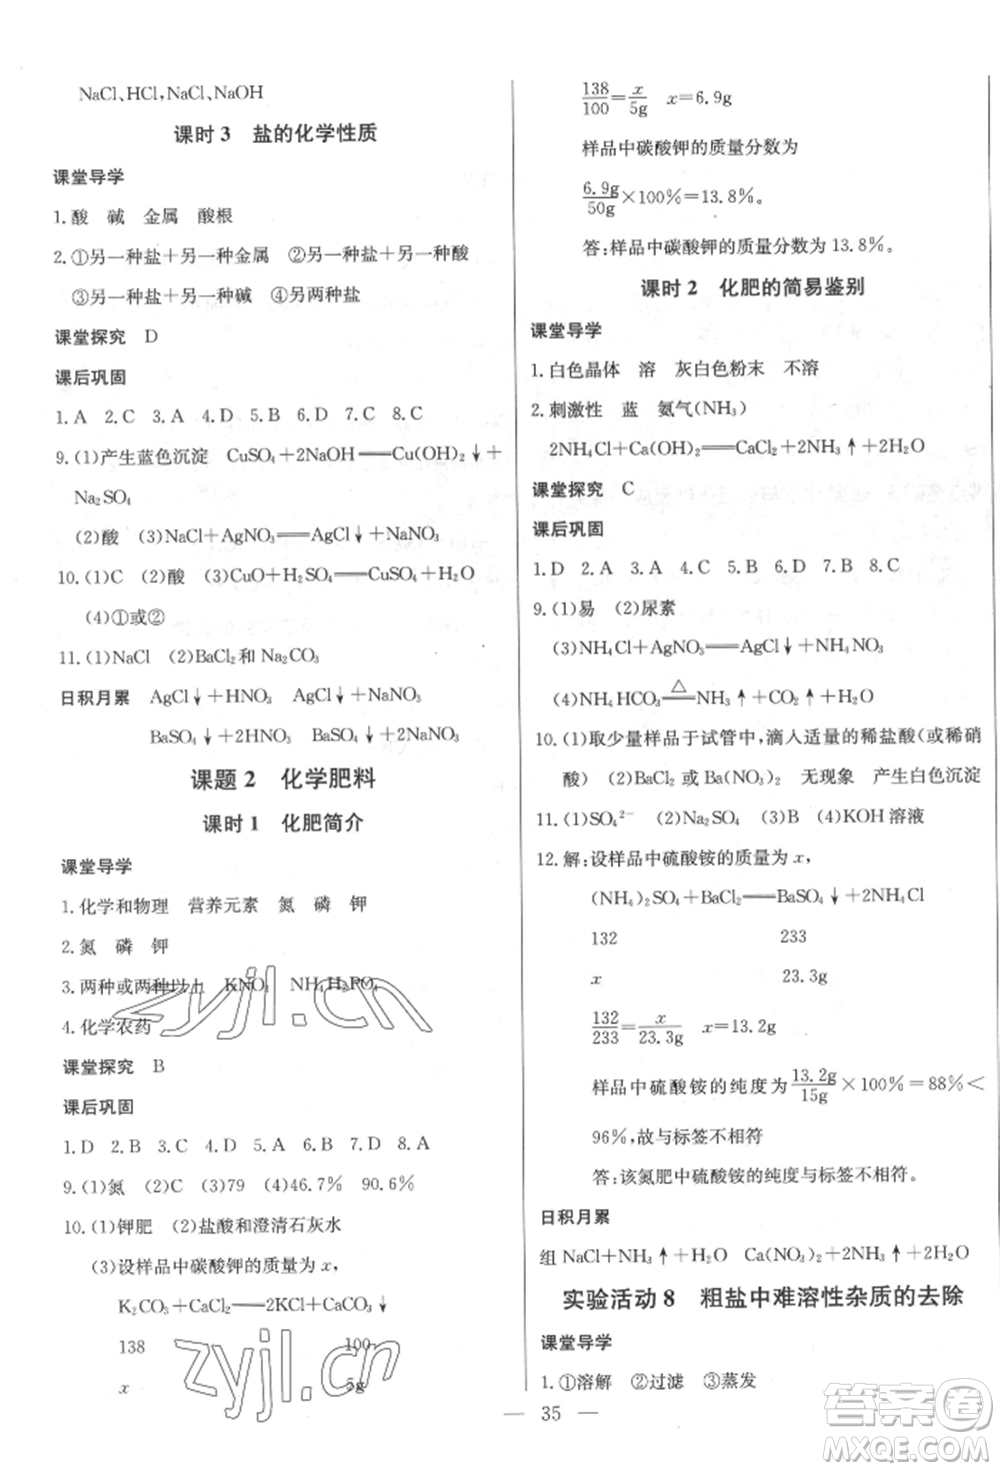 NaCl、HCl、NaCl、NaOH
课时3 盐的化学性质
课堂导学
1.酸 碱 金属 酸根
2.①另一种盐+另一种金属 ②另一种盐+另一种酸
③另一种盐+另一种碱 ④另两种盐
课堂探究 D
课后巩固
1.A 2.C 3.A 4.D 5.B 6.D 7.C 8.C
9.(1)产生蓝色沉淀 CuSO₄+2NaOH══Cu(OH)₂↓+
Na₂SO₄
(2)酸 (3)NaCl+AgNO₃══AgCl↓+NaNO₃
10.(1)C (2)酸 (3)CuO+H₂SO₄══CuSO₄+H₂O
(4)①或②
11.(1)NaCl (2)BaCl₂和Na₂CO₃
日积月累 AgCl↓+HNO₃ AgCl↓+NaNO₃
BaSO₄↓+2HNO₃ BaSO₄↓+2NaNO₃
课题2 化学肥料
课时1 化肥简介
课堂导学
1.化学和物理 营养元素 氮 磷 钾
2.氮 磷 钾
3.两种或两种以上 KNO₃ NH₄H₂PO₄
4.化学农药
课堂探究 B
课后巩固
1.D 2.B 3.C 4.C 5.D 6.D 7.D 8.A
9.(1)氮 (2)C (3)79 (4)46.7% 90.6%
10.(1)钾肥 (2)盐酸和澄清石灰水
(3)设样品中碳酸钾的质量为x,
K₂CO₃+CaCl₂══2KCl+CaCO₃↓
138 100
x 5g
138/100=x/5g x=6.9g
样品中碳酸钾的质量分数为
6.9g/50g×100%=13.8%
答:样品中碳酸钾的质量分数为13.8%。
课时2 化肥的简易鉴别
课堂导学
1.白色晶体 溶 灰白色粉末 不溶
2.刺激性 蓝 氨气(NH₃)
2NH₄Cl+Ca(OH)₂══CaCl₂+2NH₃↑+2H₂O
课堂探究 C
课后巩固
1.D 2.A 3.A 4.D 5.B 6.D 7.C 8.A
9.(1)易 (2)尿素
(3)NH₄Cl+AgNO₃══AgCl↓+NH₄NO₃
(4)NH₄HCO₃══△NH₃↑+CO₂↑+H₂O
10.(1)取少量样品于试管中,滴入适量的稀盐酸(或稀硝
酸) (2)BaCl₂或Ba(NO₃)₂ 无现象 产生白色沉淀
11.(1)SO₄²⁻ (2)Na₂SO₄ (3)B (4)KOH溶液
12.解:设样品中硫酸铵的质量为x,
(NH₄)₂SO₄+BaCl₂══BaSO₄↓+2NH₄Cl
132 233
x 23.3g
132/233=x/23.3g x=13.2g
样品中硫酸铵的纯度为13.2g/15g×100%=88%<
96%,故与标签不相符
答:该氮肥中硫酸铵的纯度与标签不相符。
日积月累
组 NaCl+NH₃↑+H₂O Ca(NO₃)₂+2NH₃↑+2H₂O
实验活动8 粗盐中难溶性杂质的去除
课堂导学
1.①溶解 ②过滤 ③蒸发
— 35 —
zyjl.cn
zyjl.cn
答案圈
MXQE.COM